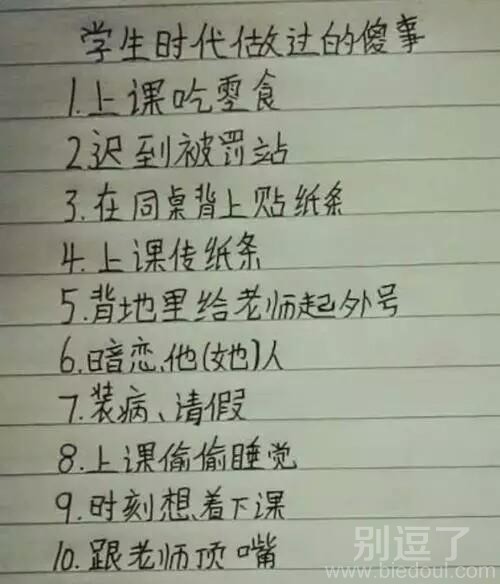 学生时代做过的傻事
1.上课吃零食
2.迟到被罚站
3.在同桌背上贴纸条
4.上课传纸条
5.背地里给老师起外号
6.暗恋他(她)人
7.装病、请假
8.上课偷偷睡觉
9.时刻想着下课
10.跟老师顶嘴
别逗了
www.biedoul.com